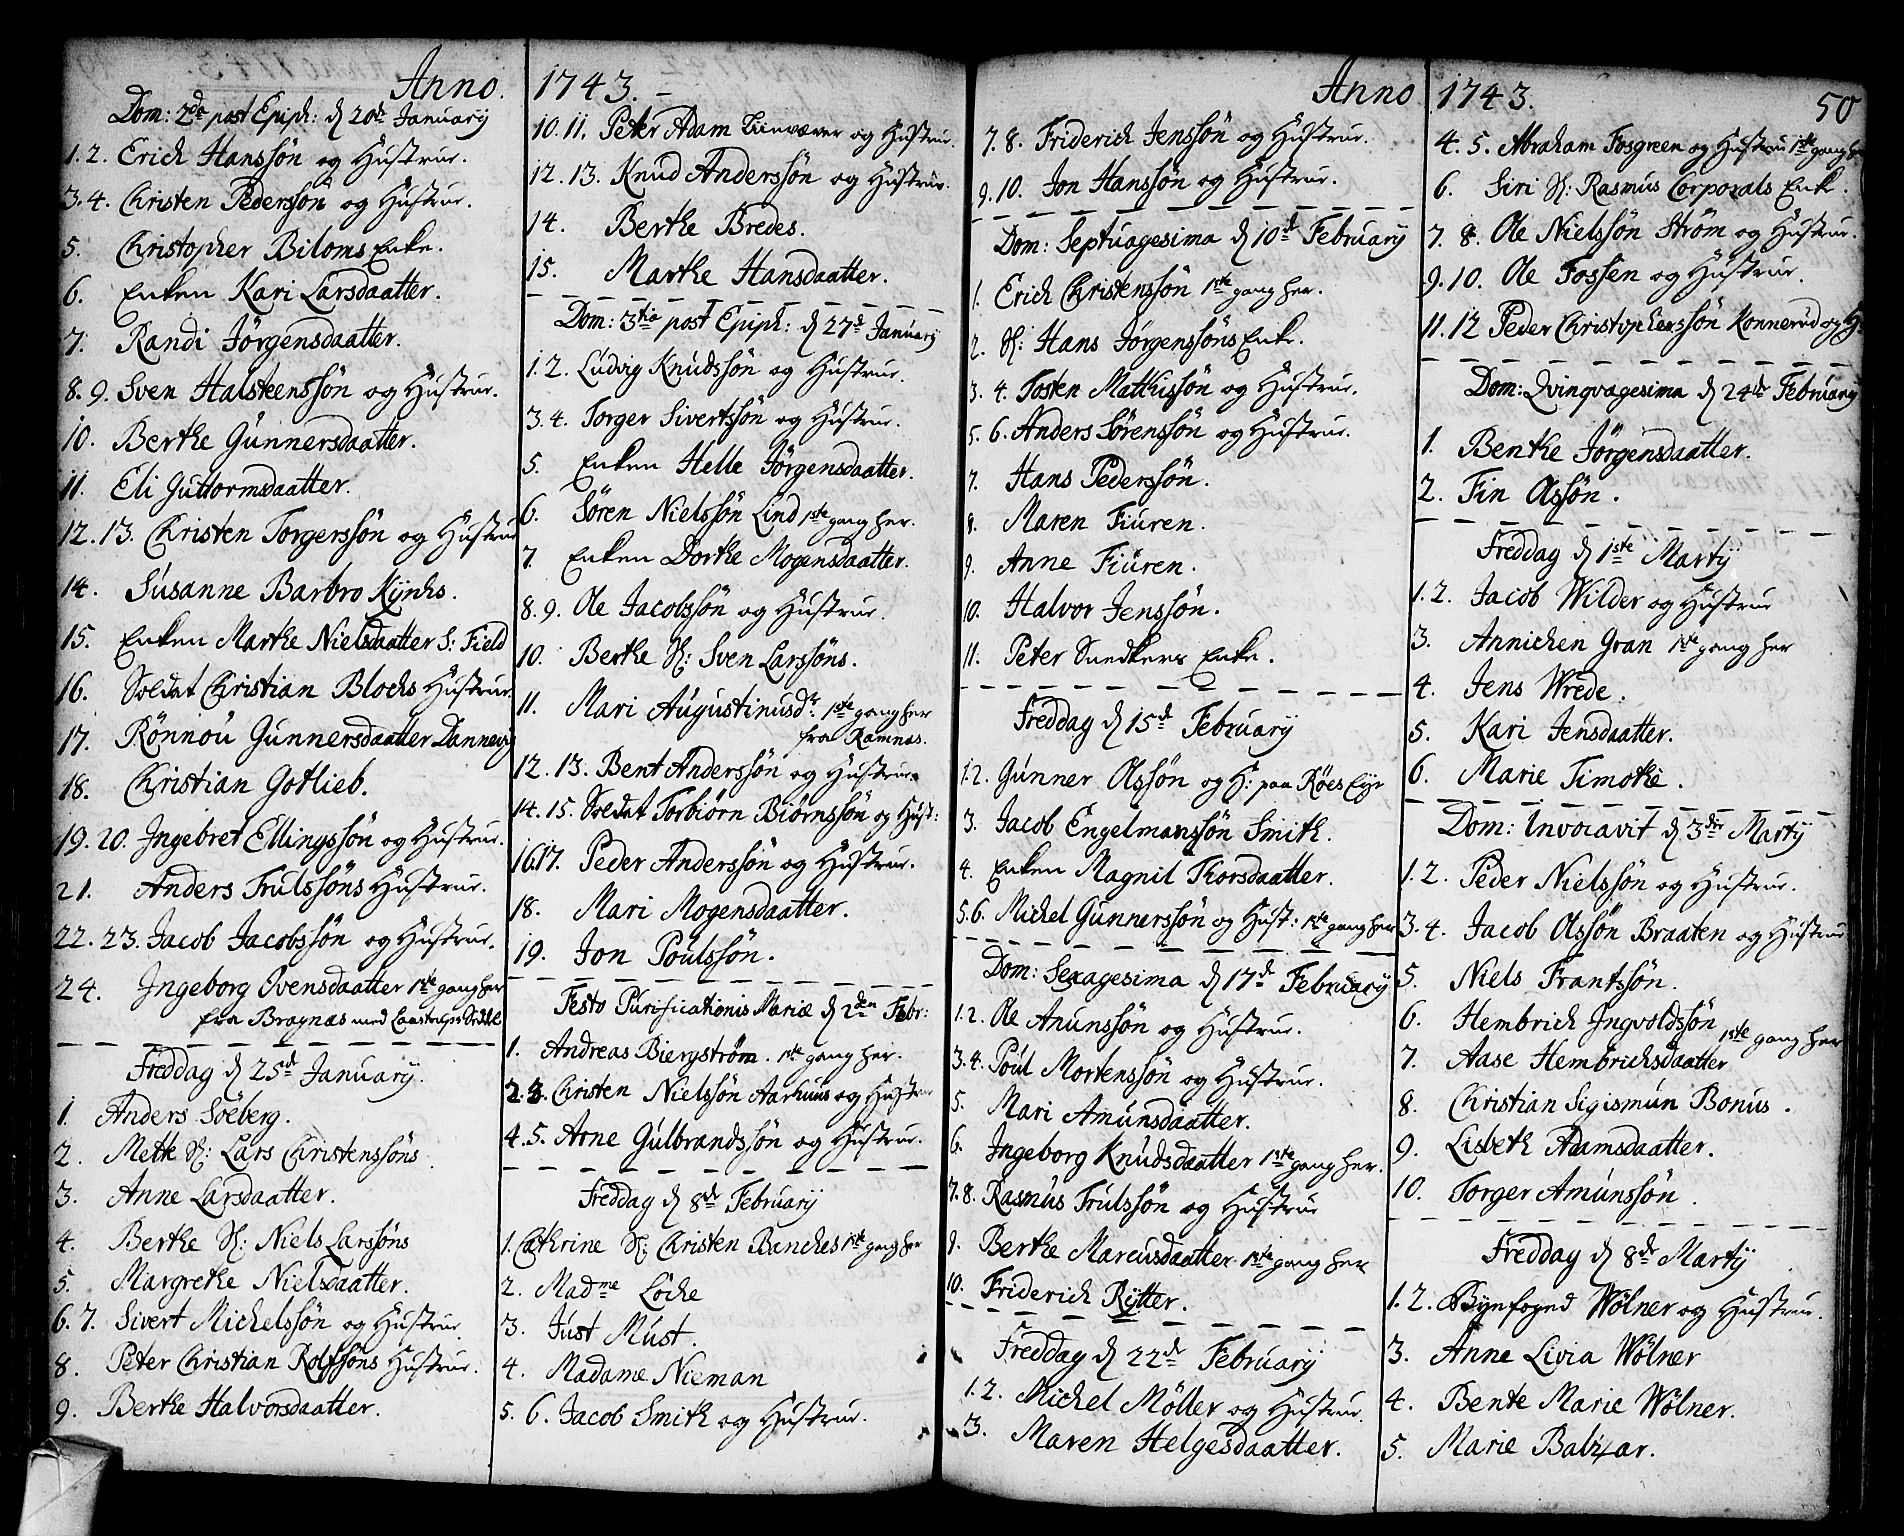 Anno. 1743.
Dom: 2da post Epiph: d 20de Januarij
1. 2. Erich Hanssön og Hustrue.
3. 4. Christen Pederssön og Hustrue.
5. Christopher Biloms Enke.
6. Enken Kari Larsdaatter.
7. Randi Jörgensdaatter.
8. 9. Sven Halsteenssön og Hustrue.
10. Berthe Gunnersdaatter.
11. Eli Guttormsdaatter.
12. 13. Christen Torgerssön og Hustrue
14. Susanne Barbro
15. Enken Marthe Nielsdaatter S: Field
16. Soldat Christian Blochs Hustrue.
17. Rönnou Gunnersdaatter Dannevig
18. Christian Gotlieb.
19. 20. Ingebret Ellingssön og Hustrue.
21. Anders Trulssöns Hustrue.
22. 23. Jacob Jacobssön og Hustrue.
24. Ingeborg Ovensdaatter 1ste gang her
fra Bragnæs med Seddel
Freddag d 25de Januarij.
1 Anders Soeberg.
2. Mette Sl: Lars Christenssöns.
3. Anne Larsdaatter.
4. Berthe Sl: Niels Larssöns
5. Margrethe Nielsdaatter.
6. 7. Sivert Michelssön og Hustrue
8. Peter Christian Rolfssöns Hustrue.
9. Berthe Halvorsdaatter.
10. 11. Peter Adam Liinvæver og Hustrue.
12. 13. Knud Anderssön og Hustrue.
14. Berthe Bredes.
15. Marthe Hansdaatter.
Dom: 3tia post Epiph: d 27de Januarij
1. 2. Ludvig Knudssön og Hustrue.
3. 4. Torger Sivertssön og Hustrue.
5. Enken Helle Jörgensdaatter.
6. Sören Nielssön Lind 1ste gang her.
7. Enken Dorthe Mogensdaatter.
8. 9. Ole Jacobssön og Hustrue.
10. Berthe Sl: Sven Larssöns.
11. Mari Augustinusdr. 1ste gang her
fra Ramnæs.
12. 13. Bent Anderssön og Hustrue.
14. 15. Soldat Torbiörn Biörnssön og Hust:
16. 17. Peder Anderssön og Hustrue.
18. Mari Mogensdaatter.
19. Jon Poulssön.
Festo Purificationis Mariæ d 2den Febr:
1. Andreas Biergström. 1ste gang her.
2. 3. Christen Nielssön Aarhuus og Hustrue
4. 5. Arne Gulbrandssön og Hustrue.
Freddag d 8de Februarij
1. Cathrine Sl: Christen Banches 1ste gang her
2. Madme Löche
3. Just Must.
4. Madame Nieman
5. 6. Jacob Smith og Hustrue.
Anno 1743. 50
7. 8. Friderich Jenssön og Hustrue.
9. 10. Jon Hanssön og Hustrue.
Dom: Septuagesima d 10de Februarij
1. Erich Christenssön 1ste gang her.
2. Sl: Hans Jörgenssöns Enke.
3. 4. Tosten Mathissön og Hustrue.
5. 6. Anders Sörenssön og Hustrue.
7. Hans Pederssön.
8. Maren Fiuren.
9. Anne Fiuren.
10. Halvor Jenssön.
11. Peter Snedkers Enke.
Freddag d 15de Februarij
1. 2. Gunner Olssön og H: paa Röes Eje
3. Jacob Engelmanssön Smith.
4. Enken Magnil Thorsdaatter.
5. 6. Michel Gunnerssön og Hust: 1ste gang her
Dom: Sexagesima d 17de Februarij
1. 2. Ole Anunssön og Hustrue.
3. 4. Poul Mortenssön og Hustrue.
5. Mari Amunsdaatter.
6. Ingeborg Knudsdaatter 1ste gang her.
7. 8. Rasmus Trulssön og Hustrue
9. Berthe Marcusdaatter 1ste gang her
10. Friderich Rytter.
Freddag d 22de Februarij
1. 2. Michel Möller og Hustrue.
3. Maren Helgesdaatter.
4. 5. Abraham Fosgreen og Hustrue 1ste gang her
6. Siri Sl: Rasmus Corporals Enke.
7. 8. Ole Nielssön Ström og Hustrue.
9. 10. Ole Fossen og Hustrue.
11. 12 Peder Christopherssön Konnerud og H:
Dom: Qvinqvagesima d 24de Februarij
1. Benthe Jörgensdaatter.
2. Fin Olssön.
Freddag d 1ste Martij
1. 2. Jacob Wilder og Hustrue
3. Annichen Gran 1ste gang her
4. Jens Wrede.
5. Kari Jensdaatter.
6. Marie Timothe.
Dom: Invocavit d 3die Martij
1. 2. Peder Nielssön og Hustrue.
3. 4. Jacob Olssön Braaten og Hustrue
5. Niels Frantssön.
6. Hembrich Ingvoldssön
1ste gang her
7. Aase Hembrichsdaatter
8. Christian Sigismun Bonus.
9. Lisbeth Adamsdaatter.
10. Torger Amunssön.
Freddag d 8de Martij
1. 2. Byefoged Wölner og Hustrue.
3. Anne Livia Wölner
4. Bente Marie Wölner.
5. Marie Balzar.